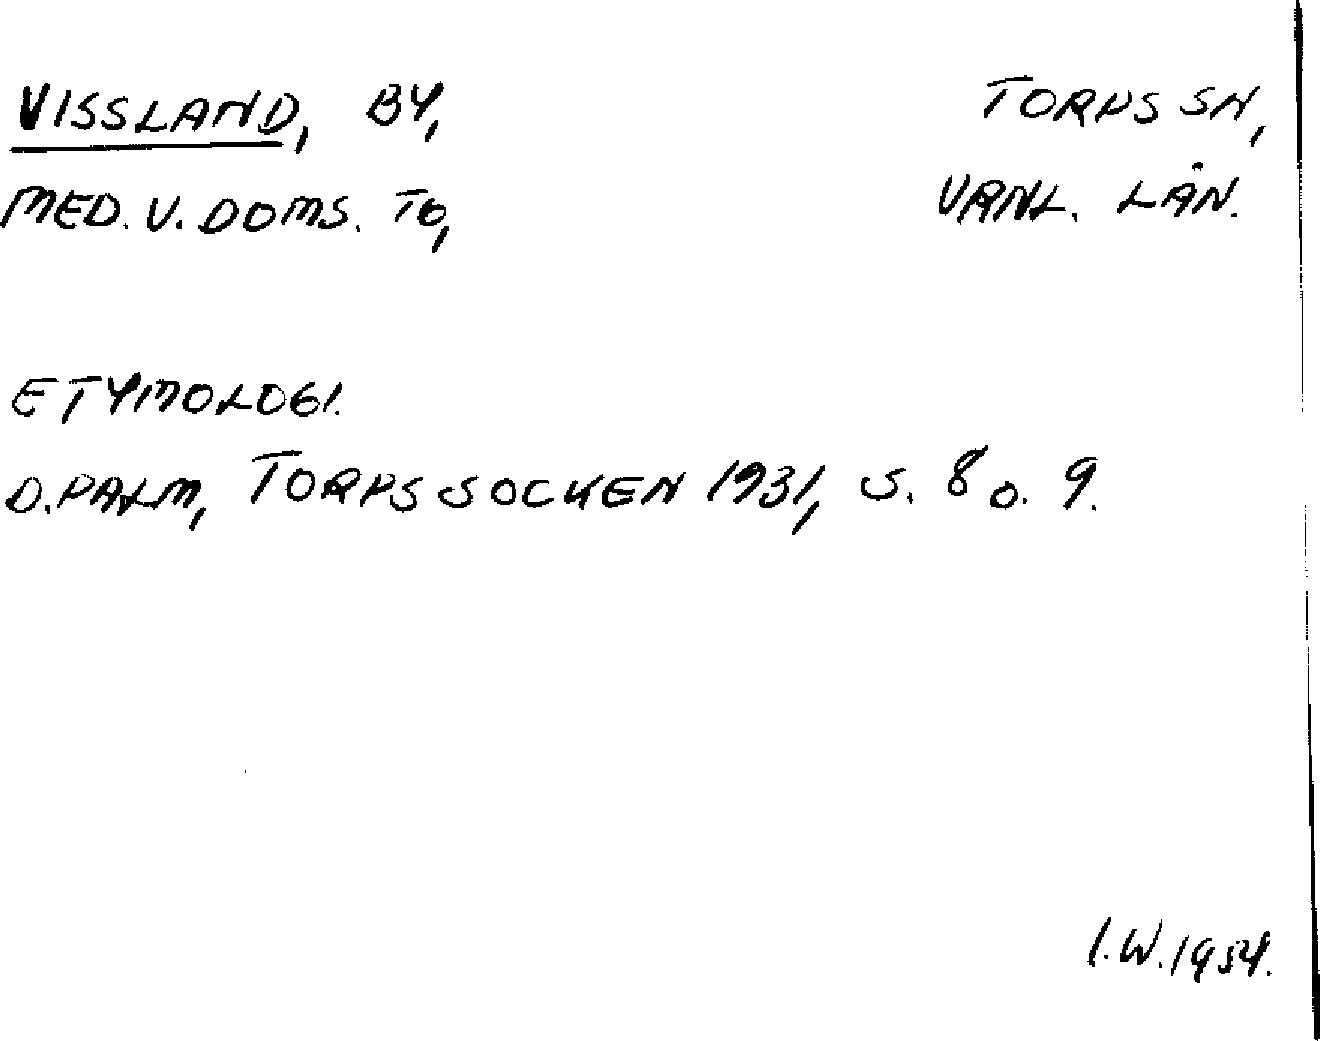 VISSLAND, BY, TORPS SN,
MED. V. DOMS. TG, VRNL. LÄN.
ETYMOLOGI.
D. PALM, TORPS SOCKEN 1931, S. 8 o. 9.
I.W. 1954.